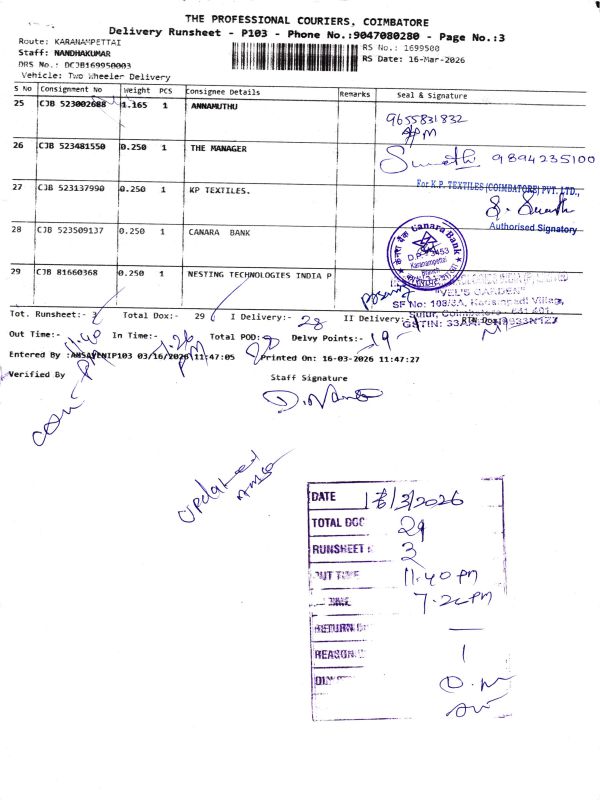 THE PROFESSIONAL COURIERS, COIMBATORE
Delivery Runsheet - P103 - Phone No.:9047080280 - Page No.:3
Route: KARANAMPETTAI
RS No.: 1699500
Staff: NANDHAKUMAR
RS Date: 16-Mar-2026
DRS No.: DCJB169950003
Vehicle: Two Wheeler Delivery
S No Consignment No Weight PCS Consignee Details Remarks Seal & Signature
25 CJB 523002688 1.165 1 ANNAMUTHU
9655831832
26 CJB 523481550 0.250 1 THE MANAGER
9894235100
27 CJB 523137990 0.250 1 KP TEXTILES.
For K.P. TEXTILES (COIMBATORE) PVT. LTD.,
Authorised Signatory
28 CJB 523509137 0.250 1 CANARA BANK
Canara Bank
D.P. 3453
Karanampettai
Branch
29 CJB 81660368 0.250 1 NESTING TECHNOLOGIES INDIA P
"VEL'S GARDEN"
SF No: 108/3A, Village,
Sulur, Coimbatore - 641 401.
Tot. Runsheet:- 3 Total Dox:- 29 I Delivery:- 28 II Delivery:-
Out Time:- 11:40 PM In Time:- 7:26 PM Total POD:- 28 Delvy Points:- 19
Entered By 03/16/2026 11:47:05 Printed On: 16-03-2026 11:47:27
Verified By
Staff Signature
updated
DATE 16/3/2026
TOTAL DOC 29
RUNSHEET 3
OUT TIME 11.40 PM
TIME 7.26 PM
RETURN —
REASON 1